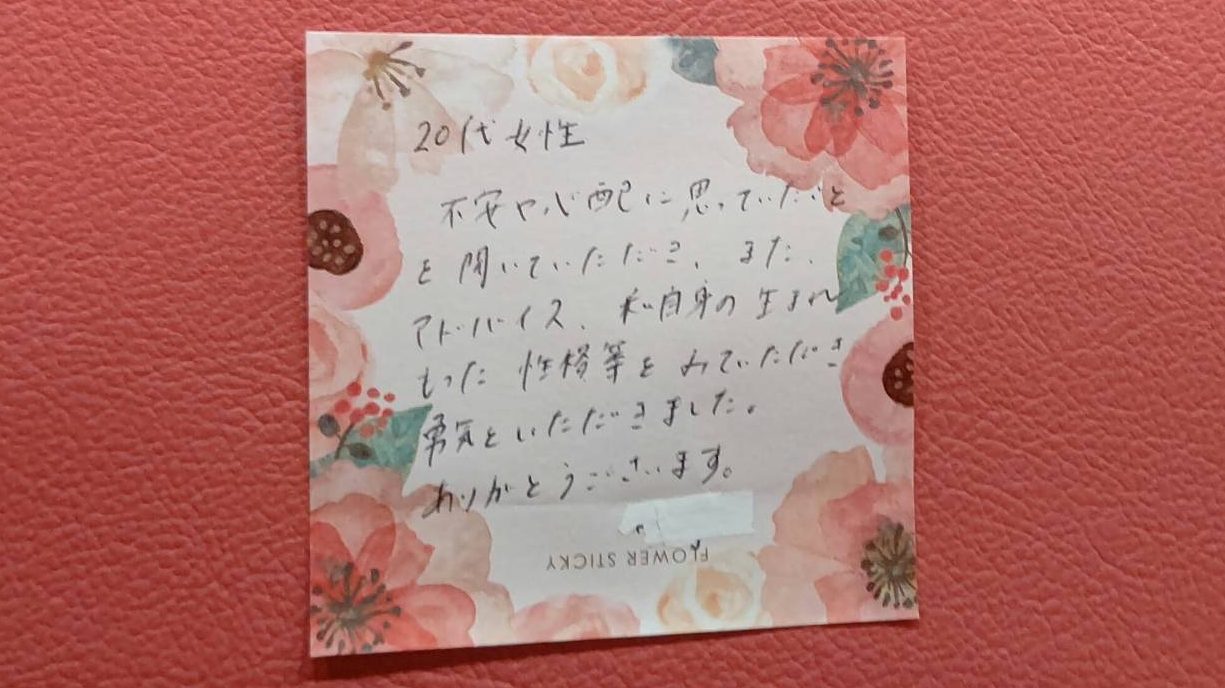 20代女性
不安や心配に思っていたこと
を聞いていただき、また、
アドバイス、私自身の生まれ
もった性格等をみていただき
勇気をいただきました。
ありがとうございます。
FLOWER STICKY